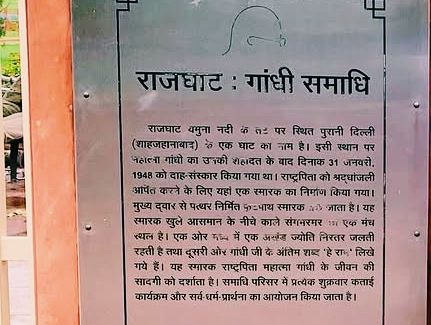 राजघाट : गांधी समाधि
राजघाट यमुना नदी के तट पर स्थित पुरानी दिल्ली
(शाहजहानाबाद) के एक घाट का नाम है। इसी स्थान पर
महात्मा गांधी का उनकी शहादत के बाद दिनांक 31 जनवरी,
1948 को दाह-संस्कार किया गया था। राष्ट्रपिता को श्रद्धांजली
अर्पित करने के लिए यहां एक स्मारक का निर्माण किया गया।
मुख्य द्वार से पत्थर निर्मित फुटपाथ स्मारक तक जाता है। यह
स्मारक खुले आसमान के नीचे काले संगमरमर का एक मंच
स्थल है। एक ओर मध्य में एक अखंड ज्योति निरंतर जलती
रहती है तथा दूसरी ओर गांधी जी के अंतिम शब्द 'हे राम' लिखे
गये हैं। यह स्मारक राष्ट्रपिता महात्मा गांधी के जीवन की
सादगी को दर्शाता है। समाधि परिसर में प्रत्येक शुक्रवार कताई
कार्यक्रम और सर्व-धर्म-प्रार्थना का आयोजन किया जाता है।